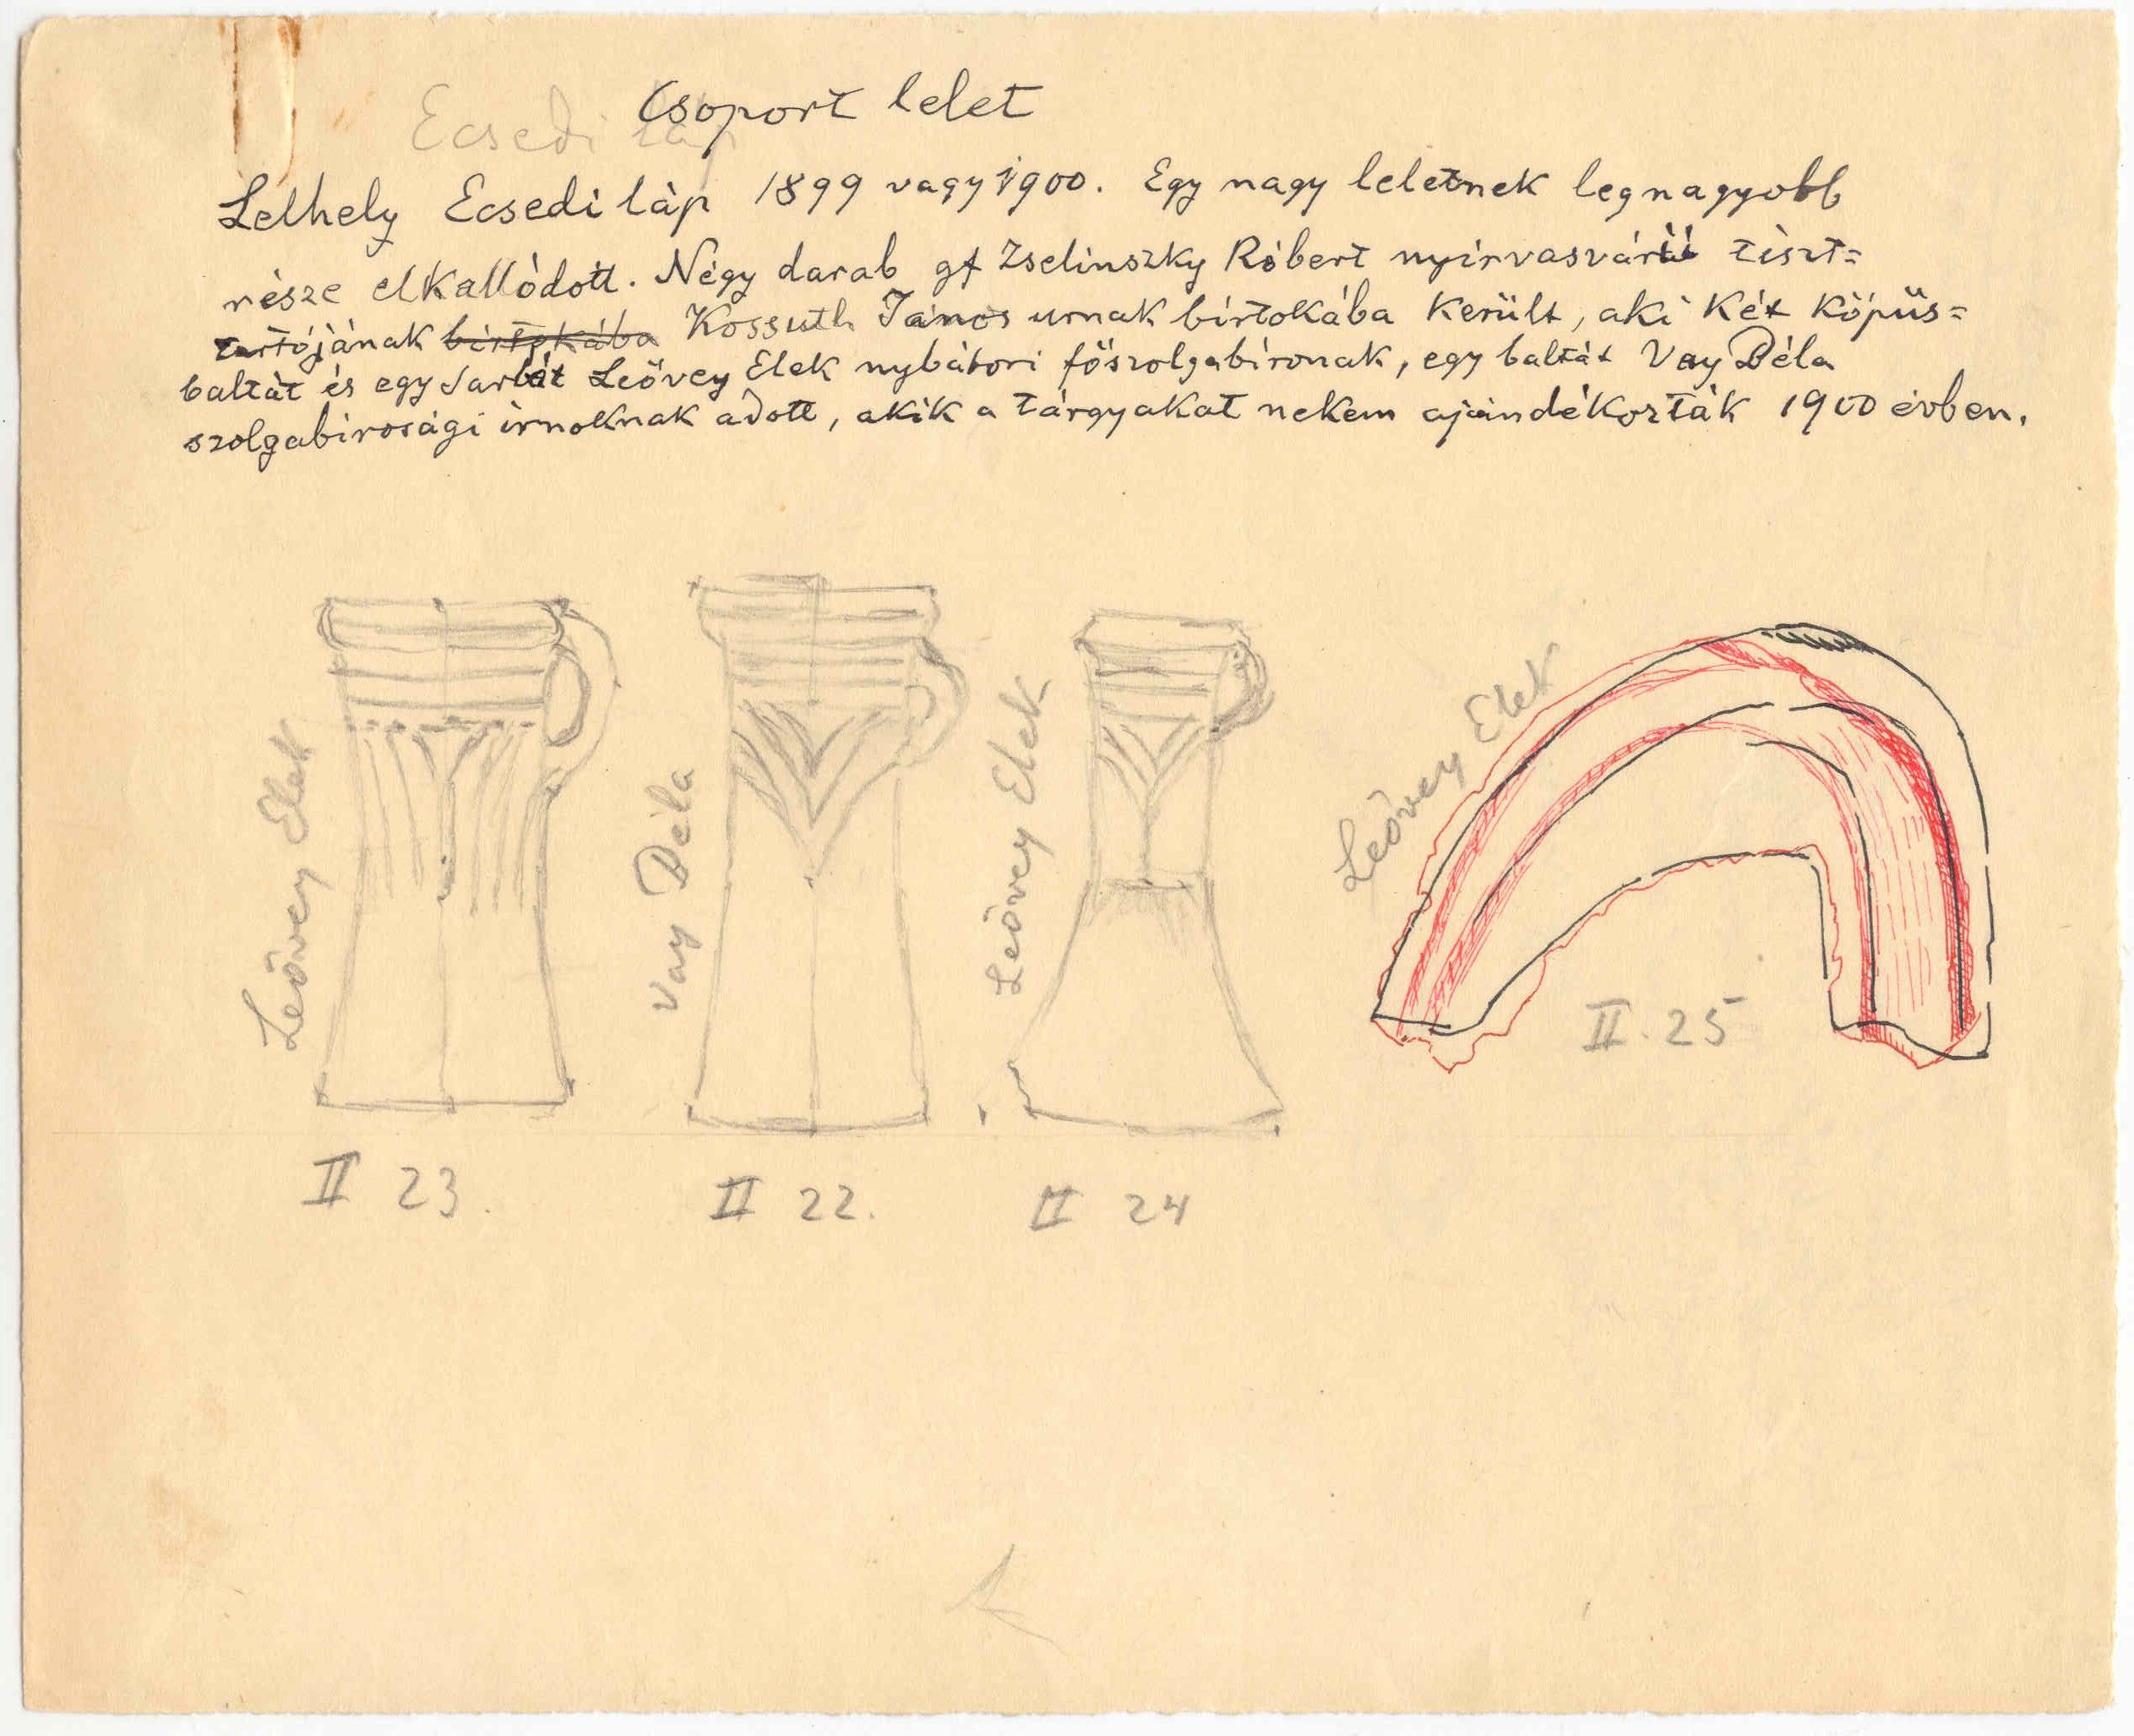 Csoport lelet
Ecsedi láp
Lelhely Ecsedi láp 1899 vagy 1900. Egy nagy leletnek legnagyobb
része elkallódott. Négy darab gf Zselinszky Róbert nyírvasvári tiszt=
tartójának birtokába Kossuth János urnak birtokába került, aki két köpüs=
baltát és egy sarlót Leövey Elek nybátori főszolgabíronak, egy baltát Vay Béla
szolgabirosági irnoknak adott, akik a tárgyakat nekem ajándékozták 1900 évben.
Leövey Elek
Vay Béla
Leövey Elek
Leövey Elek
II 23.
II 22.
II 24
II. 25